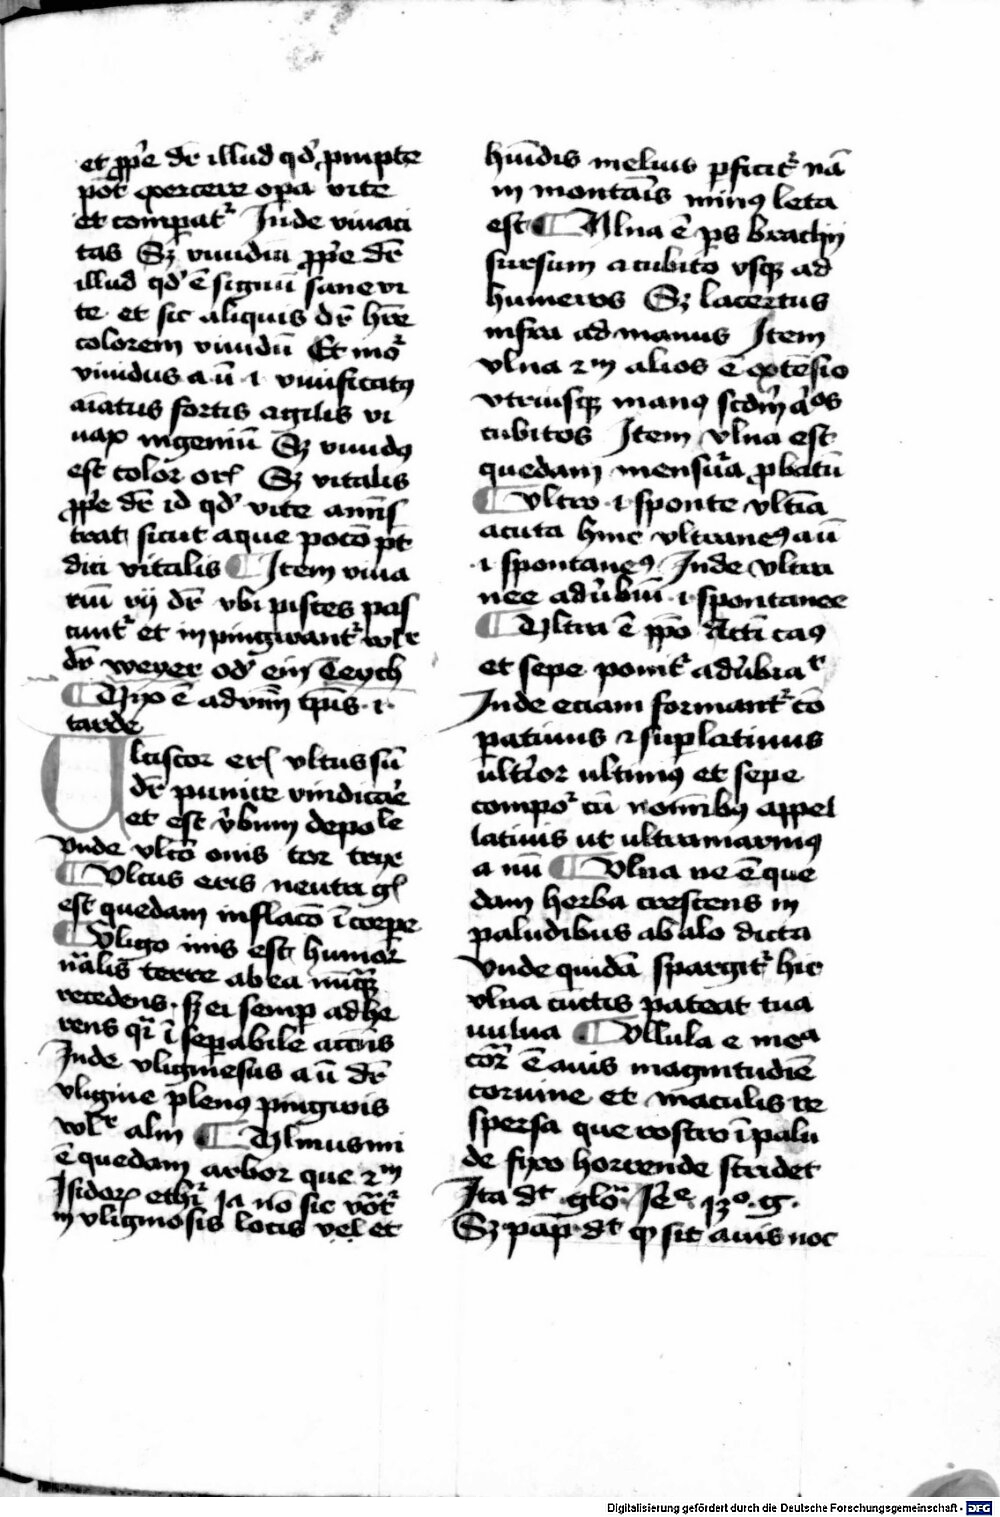 et ꝓpͥe dr̄ illud qd̓ prūpte
pōt exercere opa vite
et compat᷑ Inde viuaci
tas Sꝫ viuidū ꝓpͥe dr̄
illud qd̓ ē signū sane vi
te et sic aliquis dr̄ hr̄e
colorem viuidū Et
viuidus a ū .i. viuificatꝯ
aīatus fortis agilis vi
uax ingeniū Sꝫ viuidꝯ
est color Sꝫ vitalis
ꝓpͥe dr̄ id qd̓ vite
sicut aque
dici vitalis ¶ Item viua
riū rij dr̄ vbi pisces pas
cunt᷑ et inpingwant᷑ wlr
dr̄ weyer od̓ ein Teych
¶ Uix ē aduīm tp̄is .i.
tarde
Ulciscor erꝭ vltus sū
dr̄ punire vindictā
et est v̓bum depole
vnde vltō onis tor trix
¶ Vlcus eris neutri gꝭ
est quedam inflacō ī corpe
¶ Vligo inis est humor
nͣalis terre ab ea nūqͣꝫ
recedens . sꝫ ei semp adhe
rens qꝛ ī sepabile
Inde vliginosus a ū dr̄
vligine plenꝯ pingwis
wlr alm ¶ Vlmus mi
ē quedam arbor que
Isidoꝝ ethi᷑ Ia nō sic
in vliginosis locis vel et
hūidis melius ꝑficit᷑ nā
in montāis minꝯ leta
est ¶ Vlna ē ps brachij
sursum a cubito vsqꝫ ad
humeros Sꝫ lacertus
infra ad manus Item
vlna ẜm alios ē extēsio
vtriusqꝫ manꝯ
cubitos Item vlna est
quedam mensura
¶ Vltro .i. sponte vltīa
acuta hinc vltraneꝯ a ū
.i. spontaneꝯ Inde vltra
nee adv̓biū .i. spontanee
¶ Vltra ē ꝓpō Acti casꝯ
et sepe ponit᷑ adv̓bialr
Inde eciam formant᷑ cō
patiuus ⁊ suplatiuus
ult̓ior ultimꝯ et sepe
compo᷑ cū nomībꝯ appel
latiuis ut ultramarinꝯ
a nū ¶ Vlua ue ē que
dam herba crescens in
paludibus ab alo dicta
Vnde quidā spargit᷑ hic
vlua cutis pateat tua
uulua ¶ Vllula e
ē auis magnitudīe
coruine et maculis re
spersa que rostro ī palu
de fixo horrende stridet
Ita dt glo
Sꝫ pap dt ꝙ sit auis noc